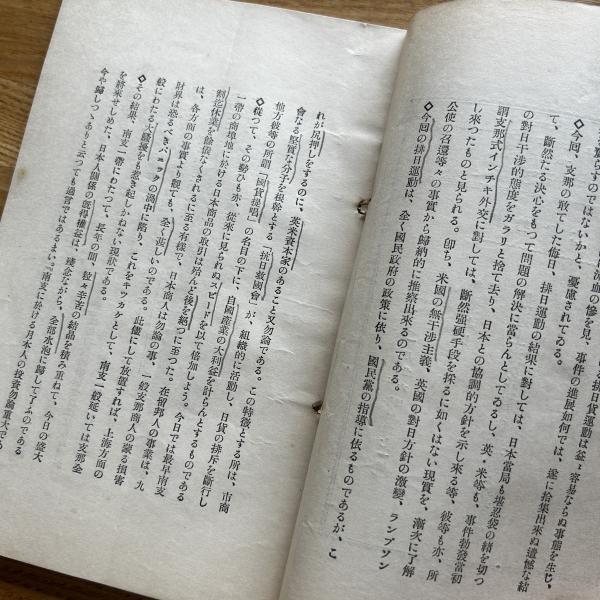 流血の慘を見、事件の進展如何では、遂に拾集出來ぬ遺憾な結
◇今回、支那の敢てした侮日、排日運動の結果に對しては、日本當局も堪忍袋の緒を切つ
て、斷然たる決心をもつて問題の解決に當らんとしてゐるし、英、米等も、事件勃發當初
の對日干涉的態度をガラリと捨て去り、日本との協調的方針を示し來る等、彼等も亦、所
謂支那式インチキ外交に對しては、斷然强硬手段を採るに如くはない現實を、漸次に了解
し來つたものと見られる。卽ち、米國の無干涉主義、英國の對日方針の激變、ランプソン
公使の召還等々の事實から歸納的に推察出來るのである。
◇今回の排日運動は、全く國民政府の政策に依り、國民黨の指導に依るものであるが、こ
れが尻押しをするのに、英米資本家のあること又勿論である。この特徵とする所は、市商
會なる堅固な分子を根幹とする「抗日救國會」が、組織的に活動し、日貨の排斥を斷行し
他方彼等の所謂「國貨提唱」の名目の下に、自國產業の大利益を計らんとするものである
◇從つて、その勢ひも亦、從來に見られぬスピードを以て倍加しよう。今日では最早南支
一帶の商埠地に於ける日本商品の取引は殆んど後を絕つに至つた。在留邦人の事業は、九
割迄休業を餘儀なくされるに至る有樣で、日本商人は勿論の事、一般支那商人の蒙る損害
は、各方面の事實より觀ても、全く夥しいのである。此儘にして放置すれば、上海方面の
財界は恐るべきパニックの渦中に陷り、これをキツカケとして、南支一般延いては支那全
般にわたる大騷擾をも惹き起しかねない現狀である。
◇その結果、南支一帶にわたつて、長年の間、粒々辛苦の結晶を積み重ねて、今日の盛大
を將來せしめた、日本人關係の旣得權益は、殘念ながら、全部水泡に歸して了ふのである
今や歸しつゝありと云つても過言ではあるまい。南支に於ける日本人の投資勿論重大であ